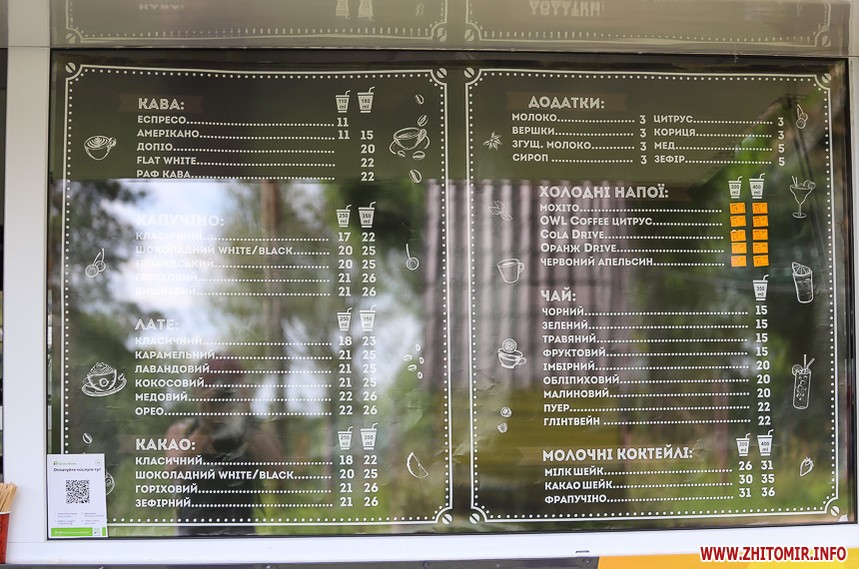 КАВА: 110 ml 180 ml
ЕСПРЕСО 11
АМЕРІКАНО 11 15
ДОПІО 20
FLAT WHITE 22
РАФ КАВА 22
КАПУЧІНО: 250 ml 350 ml
КЛАСИЧНИЙ 17 22
ШОКОЛАДНИЙ WHITE/BLACK 20 25
ІРЛАНДСЬКИЙ 20 25
ГОРІХОВИЙ 21 26
21 26
ЛАТЕ: 250 ml 350 ml
КЛАСИЧНИЙ 18 23
КАРАМЕЛЬНИЙ 21 25
ЛАВАНДОВИЙ 21 25
КОКОСОВИЙ 21 25
МЕДОВИЙ 22 26
ОРЕО 22 26
КАКАО: 250 ml 350 ml
КЛАСИЧНИЙ 18 22
ШОКОЛАДНИЙ WHITE/BLACK 20 25
ГОРІХОВИЙ 21 26
ЗЕФІРНИЙ 21 26
ДОДАТКИ:
МОЛОКО 3 ЦИТРУС 3
ВЕРШКИ 3 КОРИЦЯ 3
ЗГУЩ. МОЛОКО 3 МЕД 5
СИРОП 3 ЗЕФІР 5
ХОЛОДНІ НАПОЇ: 300 ml 400 ml
МОХІТО
OWL COFFEE ЦИТРУС
COLA DRIVE
ОРАНЖ DRIVE
ЧЕРВОНИЙ АПЕЛЬСИН
ЧАЙ: 350 ml
ЧОРНИЙ 15
ЗЕЛЕНИЙ 15
ТРАВЯНИЙ 15
ФРУКТОВИЙ 15
ІМБІРНИЙ 20
ОБЛІПИХОВИЙ 20
МАЛИНОВИЙ 20
ПУЕР 22
ГЛІНТВЕЙН 22
МОЛОЧНІ КОКТЕЙЛІ: 300 ml 400 ml
МІЛК ШЕЙК 26 31
КАКАО ШЕЙК 30 35
ФРАПУЧІНО 31 36
Оплачуйте послуги тут
WWW.ZHITOMIR.INFO